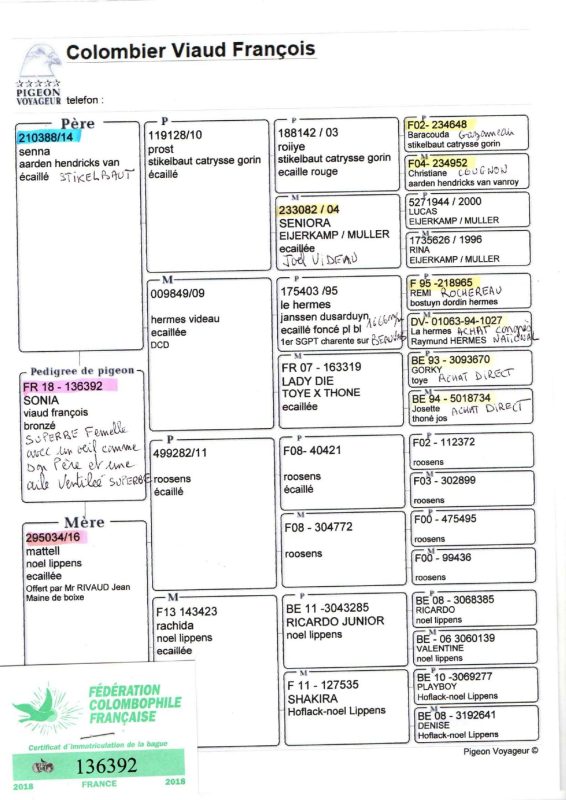 Colombier Viaud François
PIGEON
VOYAGEUR
telefon :
Père
210388/14
senna
aarden hendricks van
écaillé STIKELBAUT
Pedigree de pigeon
FR 18 - 136392
SONIA
viaud françois
bronzé
SUPERBE Femelle
avec un oeil comme
son Père et une
aile Ventilée SUPERBE
Mère
295034/16
mattell
noel lippens
ecaillée
Offert par Mr RIVAUD Jean
Maine de boixe
P
119128/10
prost
stikelbaut catrysse gorin
écaillé
M
009849/09
hermes videau
ecaillée
DCD
P
499282/11
roosens
écaillé
M
F13 143423
rachida
noel lippens
ecaillée
P
188142 / 03
roiiye
stikelbaut catrysse gorin
ecaille rouge
M
233082 / 04
SENIORA
EIJERKAMP / MULLER
ecaillée
Joël VIDEAU
P
175403 /95
le hermes
janssen dusarduyn
ecaillé foncé pl bl
1er SGPT charente sur BEAUVAIS
M
FR 07 - 163319
LADY DIE
TOYE X THONE
ecaillée
P
F08- 40421
roosens
écaillé
M
F08 - 304772
roosens
P
BE 11 -3043285
RICARDO JUNIOR
noel lippens
M
F 11 - 127535
SHAKIRA
Hoflack-noel Lippens
P
F02- 234648
Baracouda
stikelbaut catrysse gorin
M
F04- 234952
Christiane COUGNON
aarden hendricks van vanroy
P
5271944 / 2000
LUCAS
EIJERKAMP / MULLER
M
1735626 / 1996
RINA
EIJERKAMP / MULLER
P
F 95 -218965
REMI ROCHEREAU
bostuyn dordin hermes
M
DV- 01063-94-1027
La hermes ACHAT congrès
Raymund HERMES NATIONAL
P
BE 93 - 3093670
GORKY
toye ACHAT DIRECT
M
BE 94 - 5018734
Josette ACHAT DIRECT
thoné jos
P
F02 - 112372
roosens
M
F03 - 302899
roosens
P
F00 - 475495
roosens
M
F00 - 99436
roosens
P
BE 08 - 3068385
RICARDO
noel lippens
M
BE - 06 3060139
VALENTINE
noel lippens
P
BE 10 -3069277
PLAYBOY
Hoflack-noel Lippens
M
BE 08 - 3192641
DENISE
Hoflack-noel Lippens
Pigeon Voyageur ©
FÉDÉRATION
COLOMBOPHILE
FRANÇAISE
Certificat d'immatriculation de la bague
136392
2018 FRANCE 2018